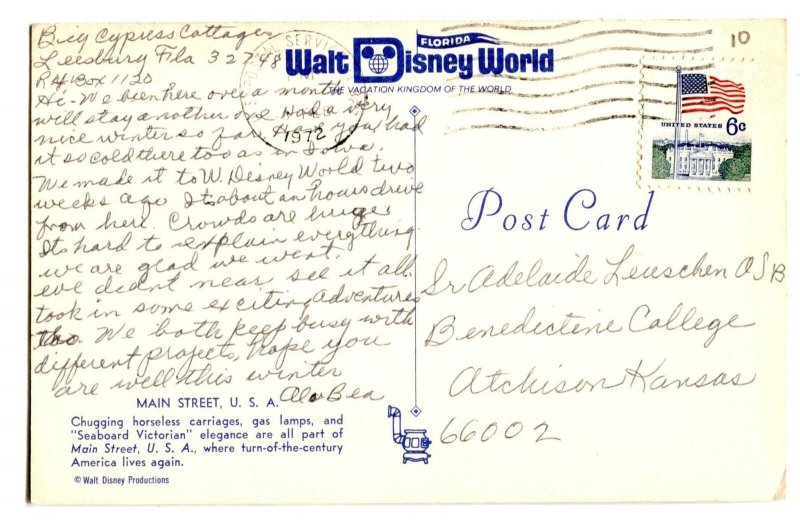 Big Cypress Cottages
Leesburg Fla 32748
R4 Box 1120
Hi - We bien here over a month
will stay another one. Had a very
nice winter so far. Hear you had
it so cold there too as in Iowa.
We made it to W. Disney World two
weeks ago Its about an hours drive
from here. Crowds are huge.
Its hard to explain everything
we are glad we went.
eve didnt near see it all.
took in some exciting adventures
too. We both keep busy with
different projects, hope you
are well this winter
Al & Bea
MAIN STREET, U. S. A.
Chugging horseless carriages, gas lamps, and
"Seaboard Victorian" elegance are all part of
Main Street, U. S. A., where turn-of-the-century
America lives again.
© Walt Disney Productions
FLORIDA
Walt Disney World
THE VACATION KINGDOM OF THE WORLD
POSTAL SERVICE
1972
10
UNITED STATES 6c
Post Card
Sr Adelaide Leuschen OSB
Benedictine College
Atchison Kansas
66002